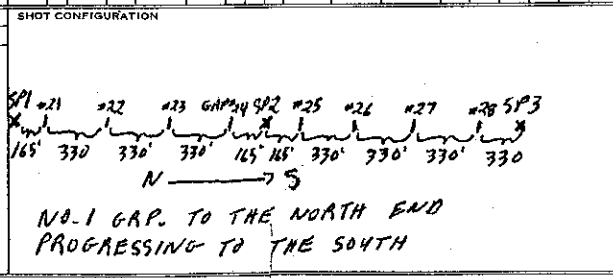 SHOT CONFIGURATION
SP1 #21 #22 #23 GRP#24 SP2 #25 #26 #27 #28 SP3
165' 330 330' 330' 165' 165' 330' 330' 330' 330
N S
NO. 1 GRP. TO THE NORTH END
PROGRESSING TO THE SOUTH